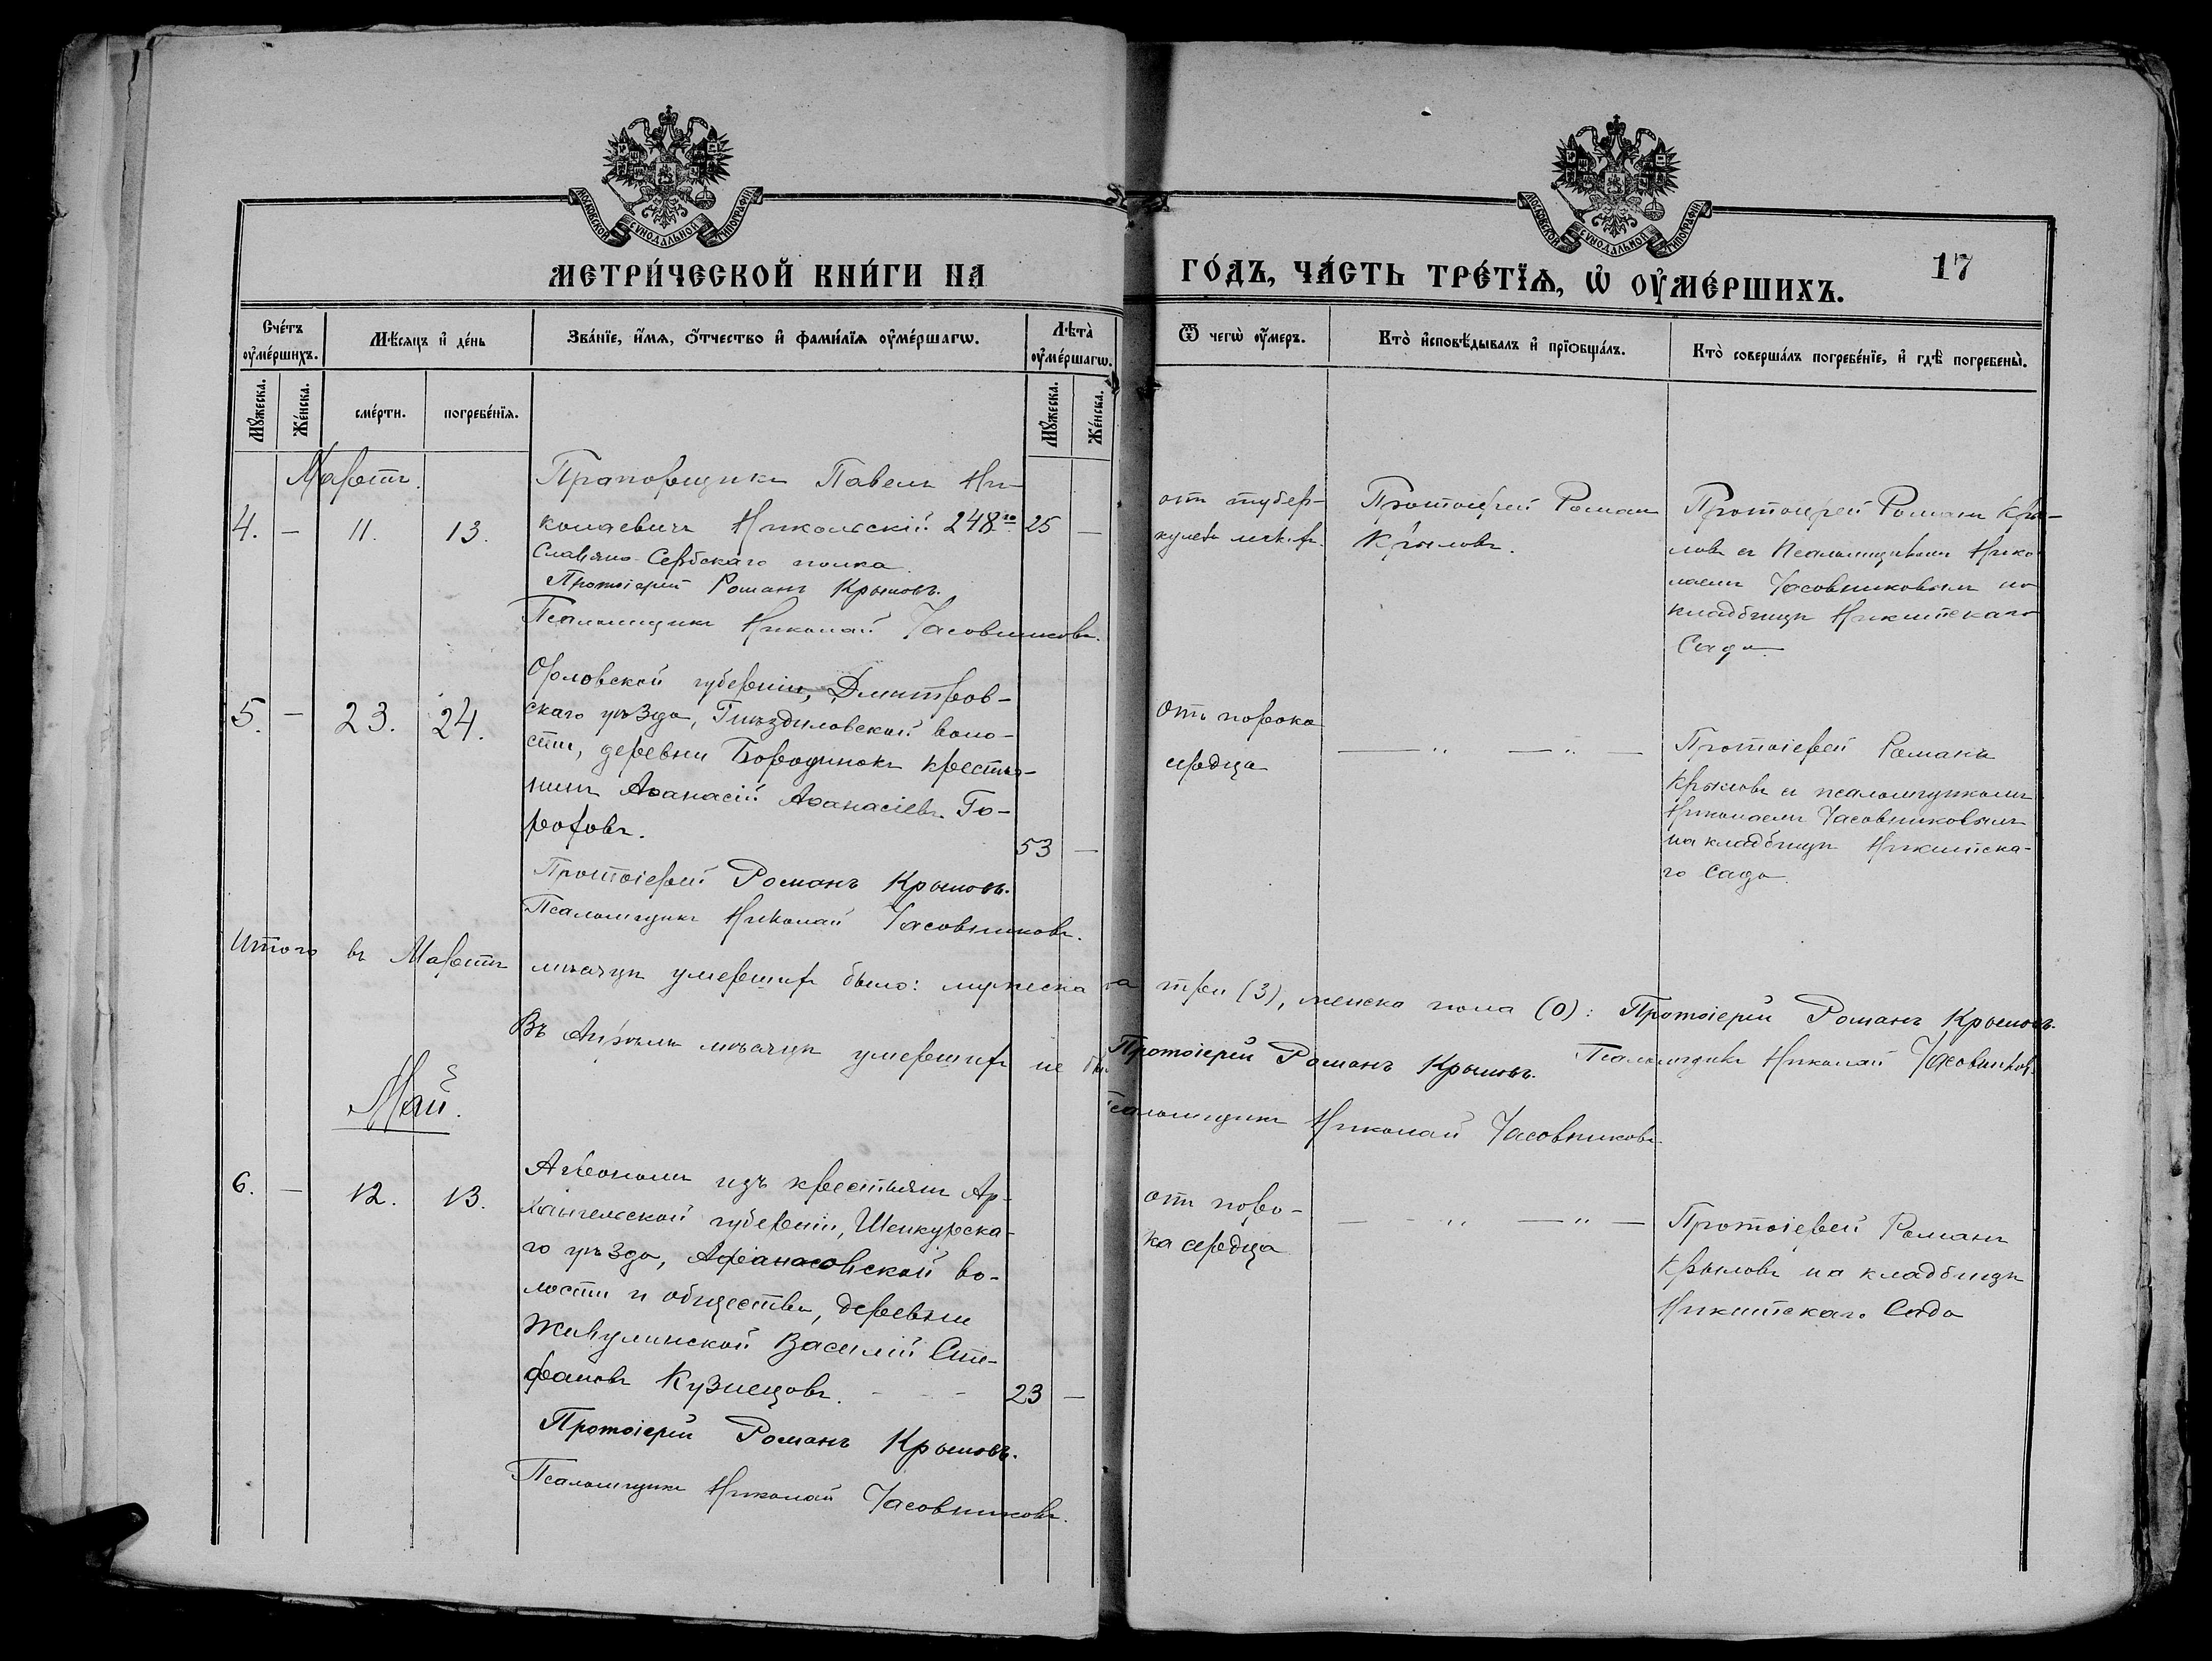 МОСКОВСКОЙ СѴНОДАЛЬНОЙ ТИПОГРАФІИ
МОСКОВСКОЙ СѴНОДАЛЬНОЙ ТИПОГРАФІИ
МЕТРИ́ЧЕСКОЙ КНИ́ГИ НА
ГО́ДЪ, ЧА́СТЬ ТРЕ́ТЇѦ, Ѡ҆ ОУ҆МЕ́РШИХЪ.
17
Сче́тъ оу҆ме́ршихъ.
Мѣ́сяцъ и҆ де́нь
Зва́нїе, и҆́мѧ, ѻ҆́тчество и҆ фами́лїѧ оу҆ме́ршагѡ.
Лѣта̀ оу҆ме́ршагѡ.
Ѿ чегѡ̀ оу҆́меръ.
Кто̀ и҆сповѣ́дывалъ и҆ прїѡбща́лъ.
Кто̀ соверша́лъ погребе́нїе, и҆ гдѣ̀ погребены̀.
Мꙋ́жеска.
Же́нска.
сме́рти.
погребе́нїѧ.
Мꙋ́жеска.
Же́нска.
Мартъ.
4. — 11. 13.
Прапорщикъ Павелъ Ни-
колаевичъ Никольскій 248го
Славяно-Сербскаго полка.
25 —
Протоіерей Романъ Крыловъ.
Псаломщикъ Николай Часовниковъ.
отъ тубер-
кулеза легк.
Протоіерей Романъ
Крыловъ.
Протоіерей Романъ Кры-
ловъ съ Псаломщикомъ Нико-
лаемъ Часовниковымъ на
кладбищѣ Никитскаго
Сада
5. — 23. 24.
Орловской губерніи, Дмитров-
скаго уѣзда, Гнѣздиловской воло-
сти, деревни Бородинокъ крестья-
нинъ Аѳанасій Аѳанасіевъ Го-
роховъ.
53 —
Протоіерей Романъ Крыловъ.
Псаломщикъ Николай Часовниковъ.
Отъ порока
сердца
— " — " —
Протоіерей Романъ
Крыловъ съ псаломщикомъ
Николаемъ Часовниковымъ
на кладбищѣ Никитска-
го Сада.
Итого въ Мартѣ мѣсяцѣ умершихъ было: мужеска три (3), женска пола (0): Протоіерей Романъ Крыловъ.
Псаломщикъ Николай Часовниковъ.
Въ Апрѣлѣ мѣсяцѣ умершихъ не Протоіерей Романъ Крыловъ.
Псаломщикъ Николай Часовниковъ.
Май.
6. — 12. 13.
Агрономъ изъ крестьянъ Ар-
хангельской губерніи, Шенкурска-
го уѣзда, Афанасовской во-
лости и общества, деревни
Жигулинской Василій Сте-
фановъ Кузнецовъ. - - -
23 —
Протоіерей Романъ Крыловъ.
Псаломщикъ Николай Часовниковъ.
отъ поро-
ка сердца
— " — " —
Протоіерей Романъ
Крыловъ на кладбищѣ
Никитскаго Сада